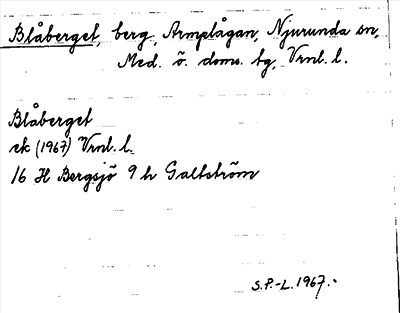 Blåberget, berg, Armplågan, Njurunda sn,
Med. ö. doms. tg, Vrnl. l.
Blåberget
ek (1967) Vrnl. l.
16 H Bergsjö 9 h Galtström
S.P.-L. 1967.